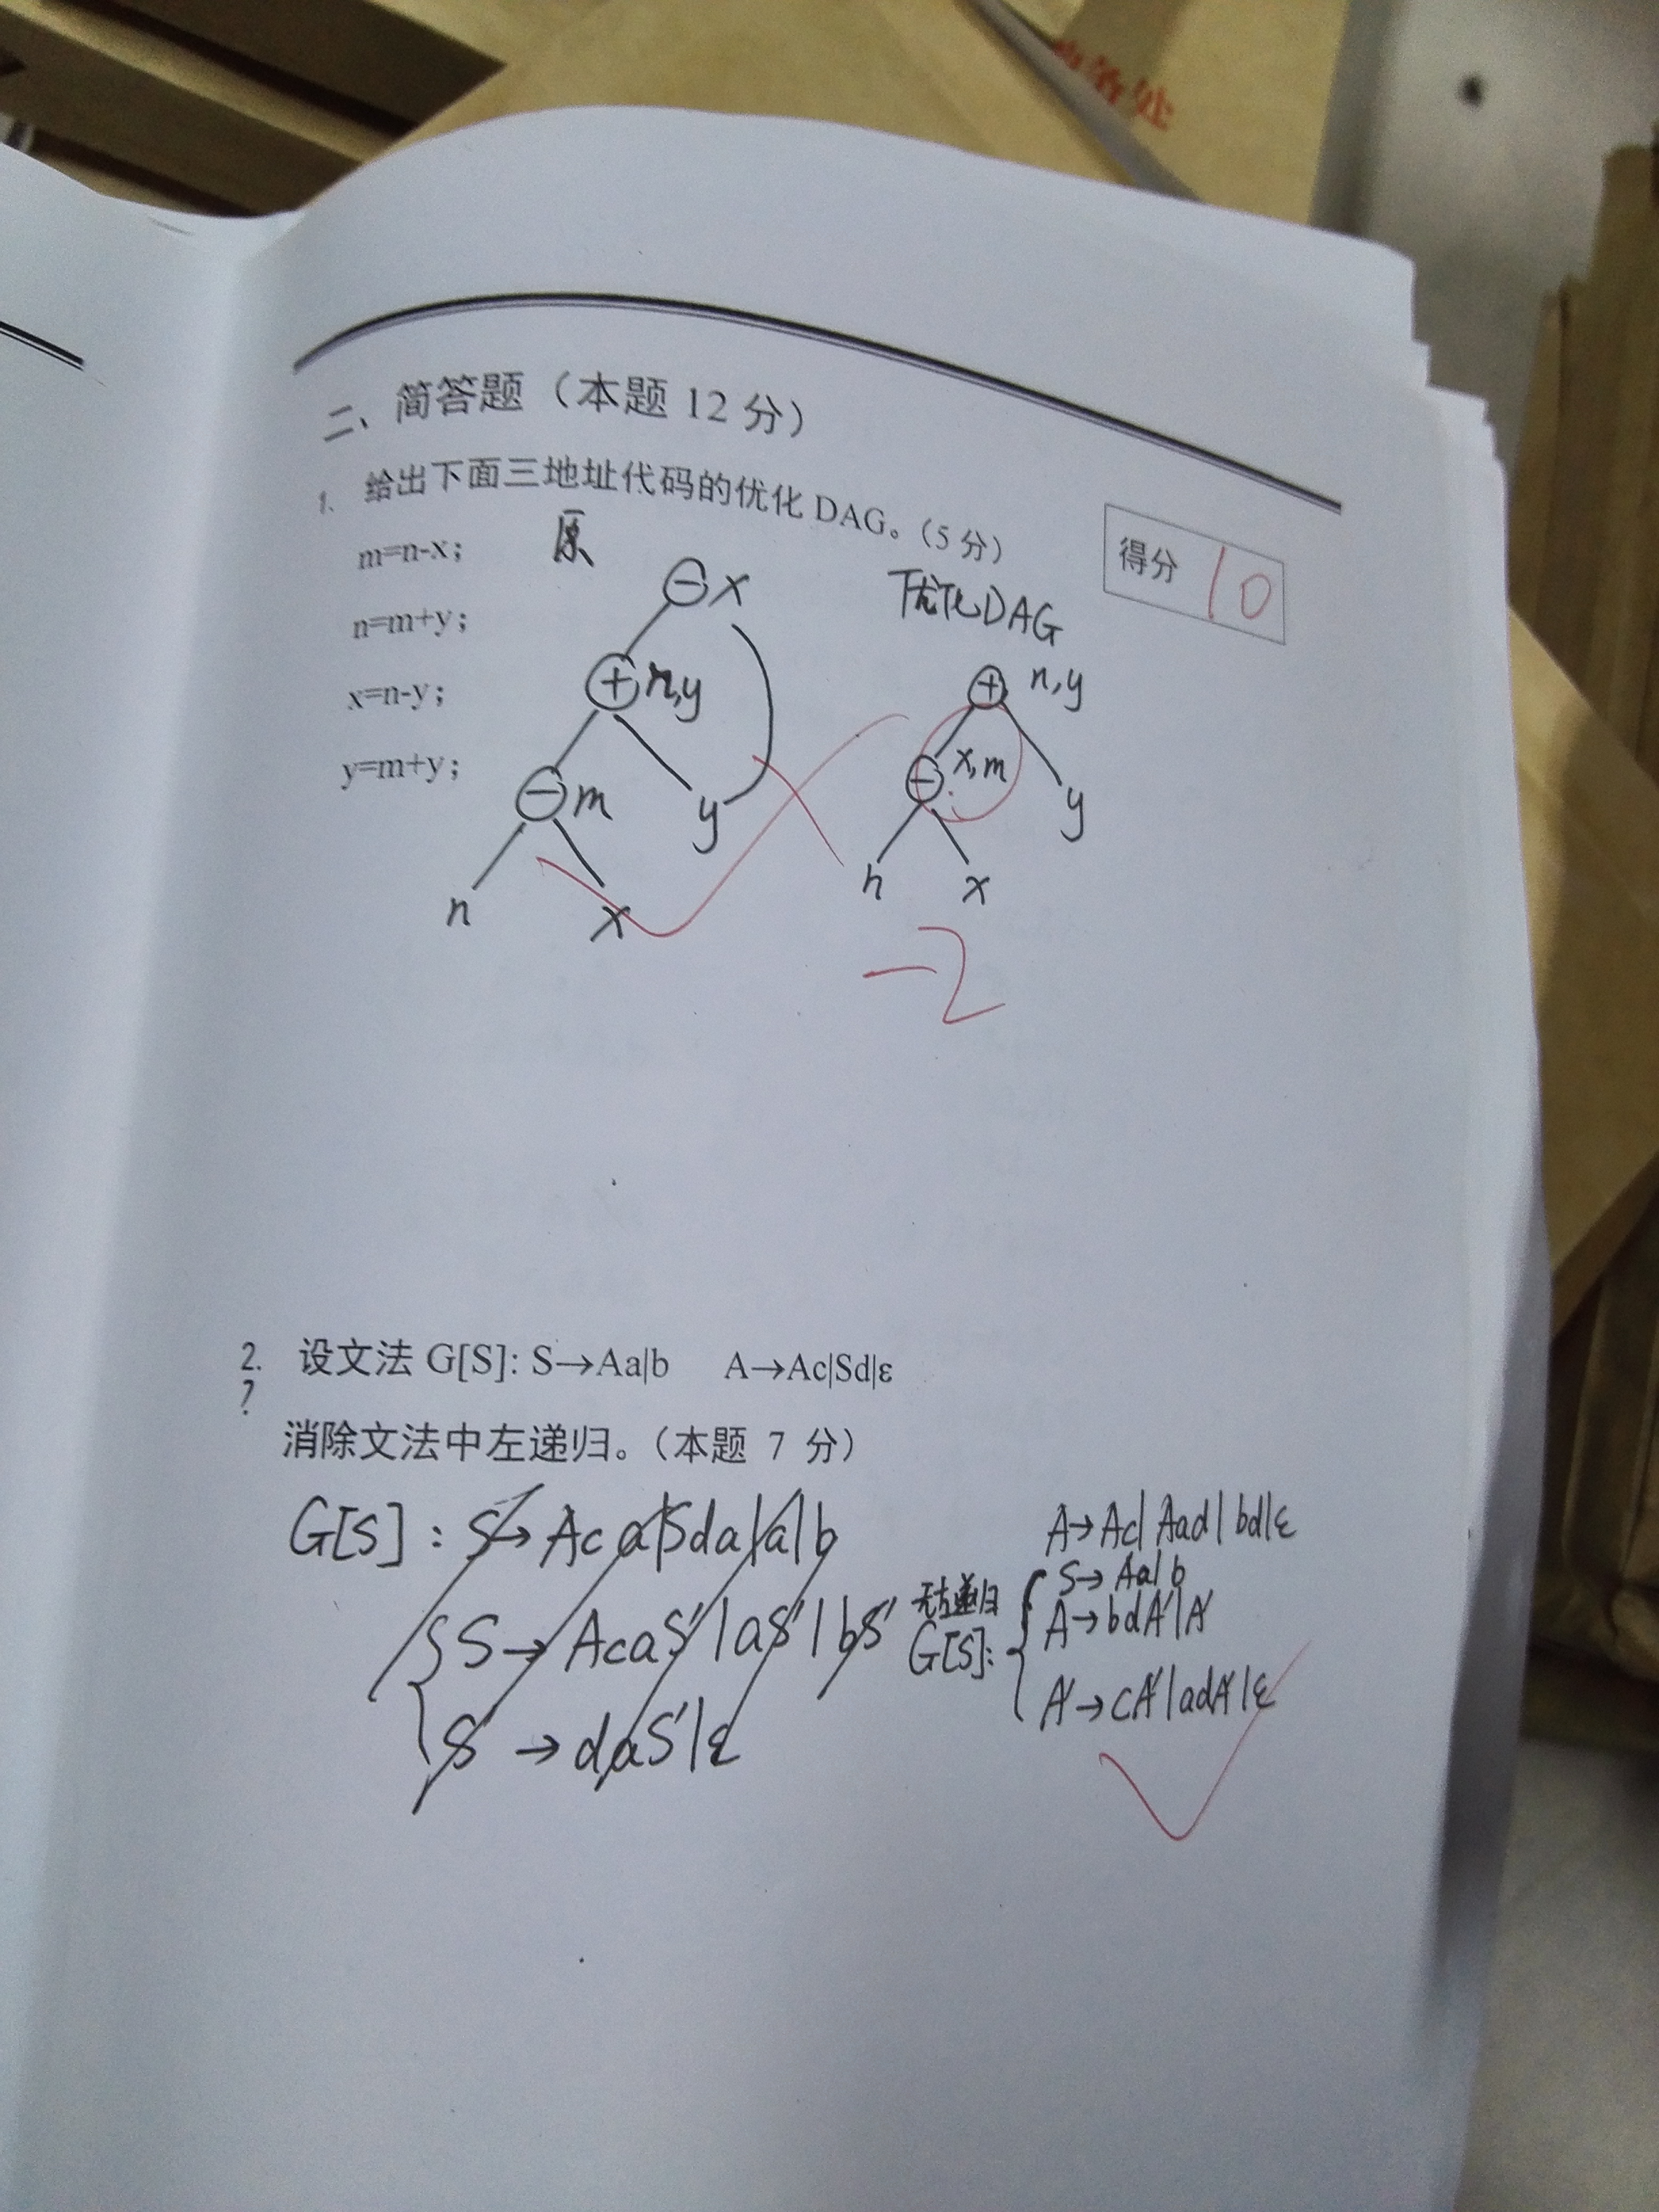 务处
二、简答题（本题 12 分）
1. 给出下面三地址代码的优化 DAG。（5 分）
得分 10
m=n-x；
n=m+y；
x=n-y；
y=m+y；
原
− x
+ n,y
− m
y
n
x
优化DAG
+ n,y
− x,m
y
n
x
−2
2. 设文法 G[S]: S→Aa|b A→Ac|Sd|ε
?
消除文法中左递归。（本题 7 分）
G[S]: S→Aca|Sda|a|b
S→AcaS'|aS'|bS'
S'→daS'|ε
A→Ac|Aad|bd|ε
无左递归
G[S]: S→Aa|b
A→bdA'|A'
A'→cA'|adA'|ε